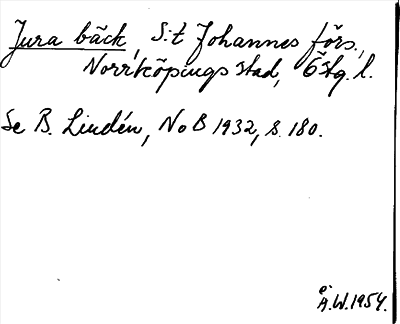 Jura bäck, S:t Johannes förs.,
Norrköpings stad, Östg. l.
Se B. Lindén, NoB 1932, s. 180.
Å.W. 1954.